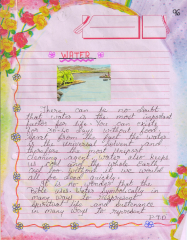 96
WATER
There can be no doubt
that water is the most important
factor for life. You can exist
for 30-40 days without food.
Apart from the fact the water
is the universal solvent and
therefore the most important
cleaning agent water also keeps
us cool and the whole Earth
cool for without it we would
all be dead quickly.
It is no wonder that the
bible uses water symbolically in
many ways to represent
spiritual life and sustenance
in many ways to represent
P.T.O